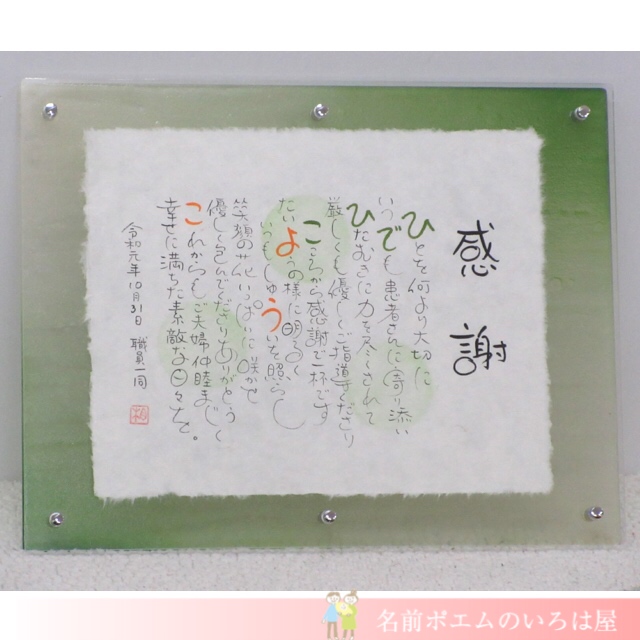 感謝
ひとを何より大切に
いつでも患者さんに寄り添い
ひたむきに力を尽くされて
厳しくも優しくご指導くださり
こころから感謝で一杯です
たいようの様に明るく
いつもしゅういを照らし
笑顔の花いっぱいに咲かせ
優しく包んでくださいありがとう
これからもご夫婦仲睦まじく
幸せに満ちた素敵な日々を。
令和元年10月31日 職員一同
名前ポエムのいろは屋